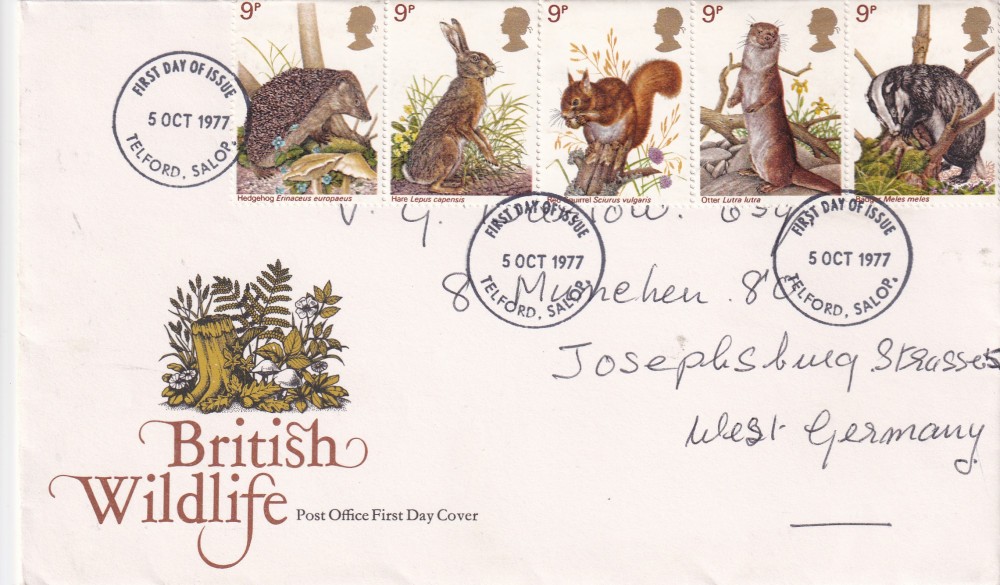 9P 9P 9P 9P 9P
Hedgehog Erinaceus europaeus
Hare Lepus capensis
Red Squirrel Sciurus vulgaris
Otter Lutra lutra
Badger Meles meles
FIRST DAY OF ISSUE
5 OCT 1977
TELFORD, SALOP.
FIRST DAY OF ISSUE
5 OCT 1977
TELFORD, SALOP.
FIRST DAY OF ISSUE
5 OCT 1977
TELFORD, SALOP.
V. G.
8 Munchen 80
Josephsburg Strasse
West Germany
British
Wildlife
Post Office First Day Cover